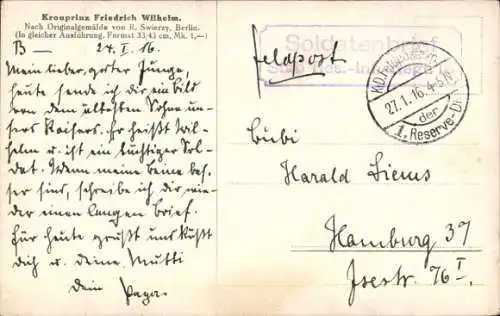 Kronprinz Friedrich Wilhelm.
Nach Originalgemälde von R. Swierzy, Berlin.
(In gleicher Ausführung, Format 33/43 cm, Mk. 1,—)
B— 27. I. 16.
Mein lieber, guter Junge,
heute sende ich dir ein Bild
von dem ältesten Sohne un-
sers Kaisers. Er heißt Wil-
helm u. ist ein tüchtiger Sol-
dat. Wenn meine Beine bes-
ser sind, schreibe ich dir wie-
der einen langen Brief.
Für heute grüßt und küßt
dich u. deine Mutti
dein Papa.
Soldatenbrief
Feldpost
K.D. Feldpostexp.
27.1.16. 4-5 N
der
1. Reserve-Div.
Bubi
Harald Siems
Hamburg 37
Isestr. 76 I